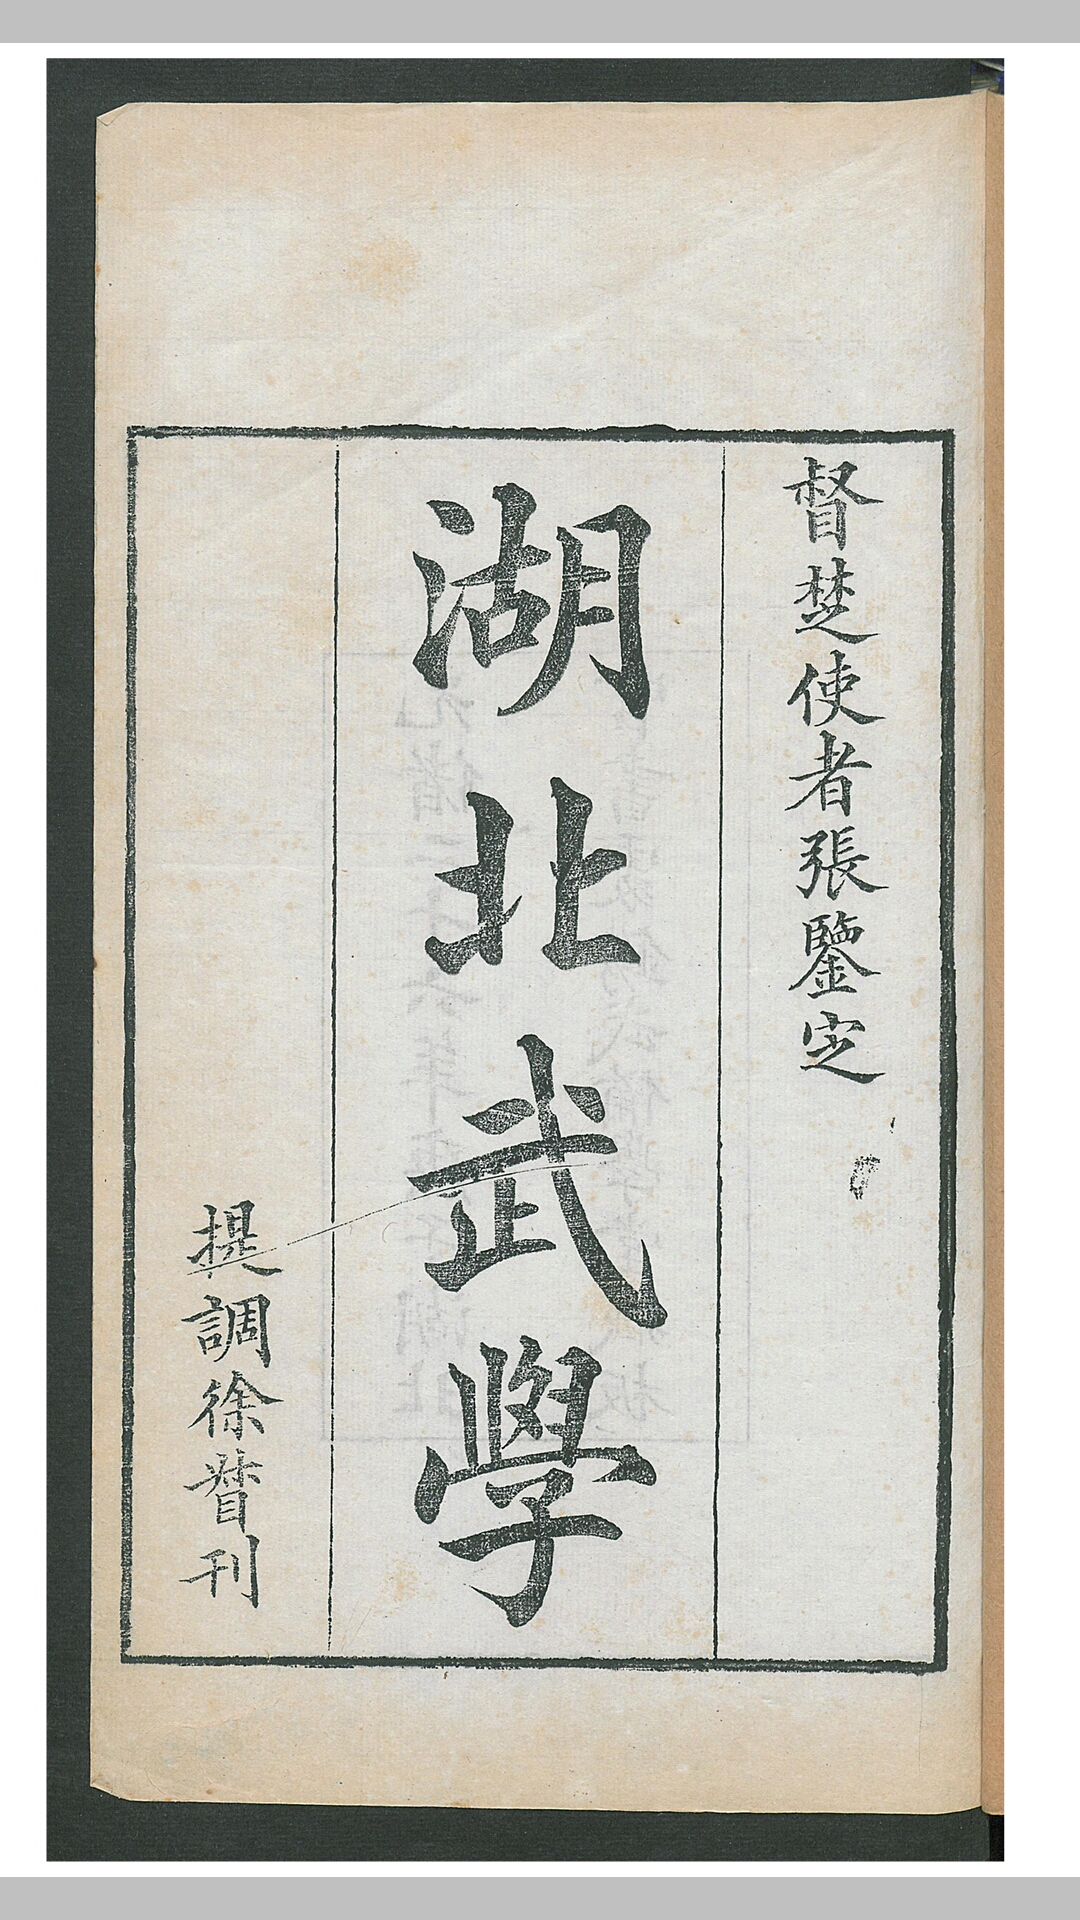 督楚使者張鑒定
湖北武學
提調徐替刊